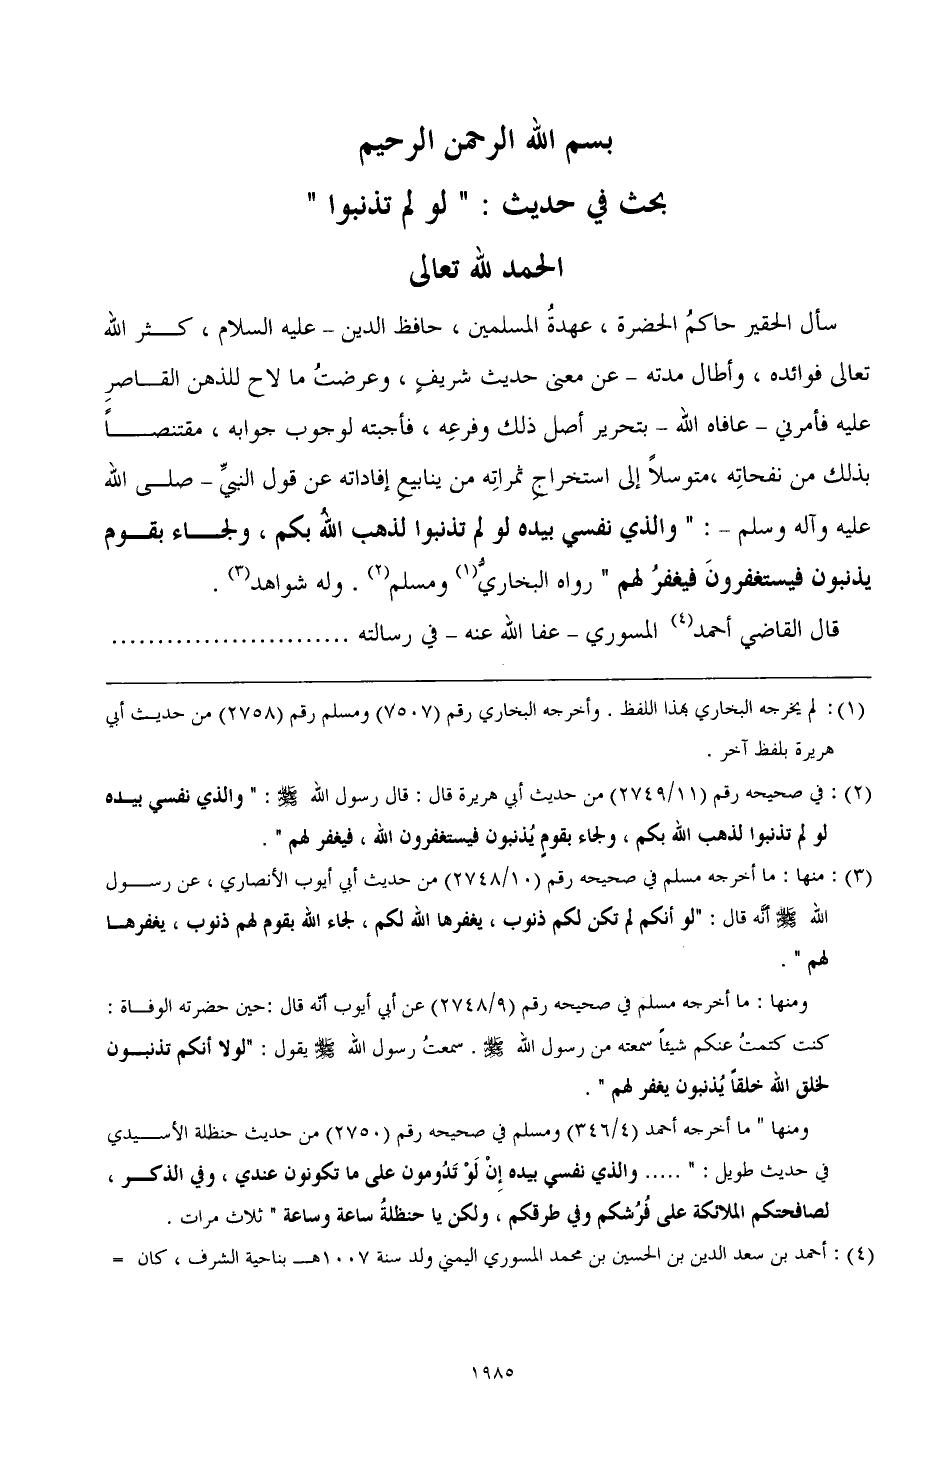 بسم الله الرحمن الرحيم
بحث في حديث : " لو لم تذنبوا "
الحمد لله تعالى
سأل الحقير حاكمُ الحضرة ، عهدةُ المسلمين ، حافظ الدين – عليه السلام ، كــثر الله
تعالى فوائده ، وأطال مدته – عن معنى حديث شريفٍ ، وعرضتُ ما لاح للذهن القــاصرِ
عليه فأمرني – عافاه الله – بتحرير أصل ذلك وفرعِه ، فأجبته لوجوب جوابه ، مقتنصــاً
بذلك من نفحاتِه ،متوسلاً إلى استخراجِ ثمراتِه من ينابيعِ إفاداته عن قول النبيِّ – صلــى الله
عليه وآله وسلم – : " والذي نفسي بيده لو لم تذنبوا لذهب اللهُ بكم ، ولجــاء بقــوم
يذنبون فيستغفرونَ فيغفرُ لهم " رواه البخاريُّ(١) ومسلم(٢) . وله شواهد(٣) .
قال القاضي أحمد(٤) المسوري – عفا الله عنه – في رسالته ..........................
(١): لم يخرجه البخاري بهذا اللفظ . وأخرجه البخاري رقم (٧٥٠٧) ومسلم رقم (٢٧٥٨) من حديث أبي
هريرة بلفظ آخر .
(٢) : في صحيحه رقم (٢٧٤٩/١١) من حديث أبي هريرة قال : قال رسول الله ﷺ : " والذي نفسي بيــده
لو لم تذنبوا لذهب الله بكم ، ولجاء بقومٍ يُذنبون فيستغفرون الله ، فيغفر لهم " .
(٣) : منها : ما أخرجه مسلم في صحيحه رقم (٢٧٤٨/١٠) من حديث أبي أيوب الأنصاري ، عن رســول
الله ﷺ أنَّه قال : "لو أنكم لم تكن لكم ذنوب ، يغفرها الله لكم ، لجاء الله بقوم لهم ذنوب ، يغفرهــا
لهم " .
ومنها : ما أخرجه مسلم في صحيحه رقم (٢٧٤٨/٩) عن أبي أيوب أنَّه قال :حين حضرته الوفــاة :
كنت كتمتُ عنكم شيئاً سمعته من رسول الله ﷺ . سمعتُ رسول الله ﷺ يقول : "لولا أنكم تذنبــون
لخلق الله خلقاً يُذنبون يغفر لهم " .
ومنها " ما أخرجه أحمد (٣٤٦/٤) ومسلم في صحيحه رقم (٢٧٥٠) من حديث حنظلة الأســيدي
في حديث طويل : " ..... والذي نفسي بيده إِنْ لَوْ تَدُومون على ما تكونون عندي ، وفي الذكــر ،
لصافحتكم الملائكة على فُرُشكم وفي طرقكم ، ولكن يا حنظلةُ ساعة وساعة " ثلاث مرات .
(٤) : أحمد بن سعد الدين بن الحسين بن محمد المسوري اليمني ولد سنة ١٠٠٧هــ بناحية الشرف ، كان =
١٩٨٥